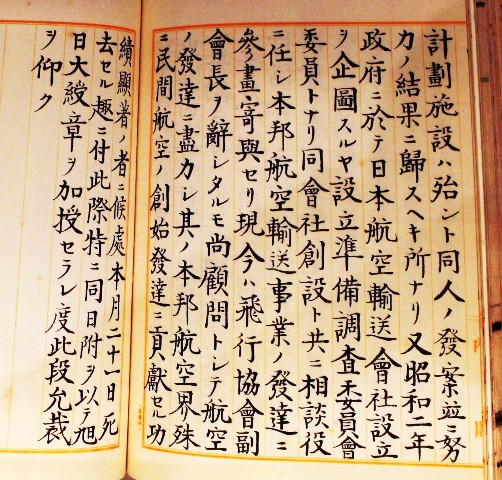 計劃施設ハ殆ント同人ノ發案並ニ努
力ノ結果ニ歸スヘキ所ナリ又昭和二年
政府ニ於テ日本航空輸送會社設立
ヲ企圖スルヤ設立準備調査委員會
委員トナリ同會社創設ト共ニ相談役
ニ任シ本邦航空輸送事業ノ發達ニ
參畫寄與セリ現今ハ飛行協會副
會長ヲ辭シタルモ尚顧問トシテ航空
ノ發達ニ盡力シ其ノ本邦航空界殊
ニ民間航空ノ創始發達ニ貢獻セル功
績顯著ノ者ニ候處本月二十一日死
去セル趣ニ付此際特ニ同日附ヲ以テ旭
日大綬章ヲ加授セラレ度此段允裁
ヲ仰ク